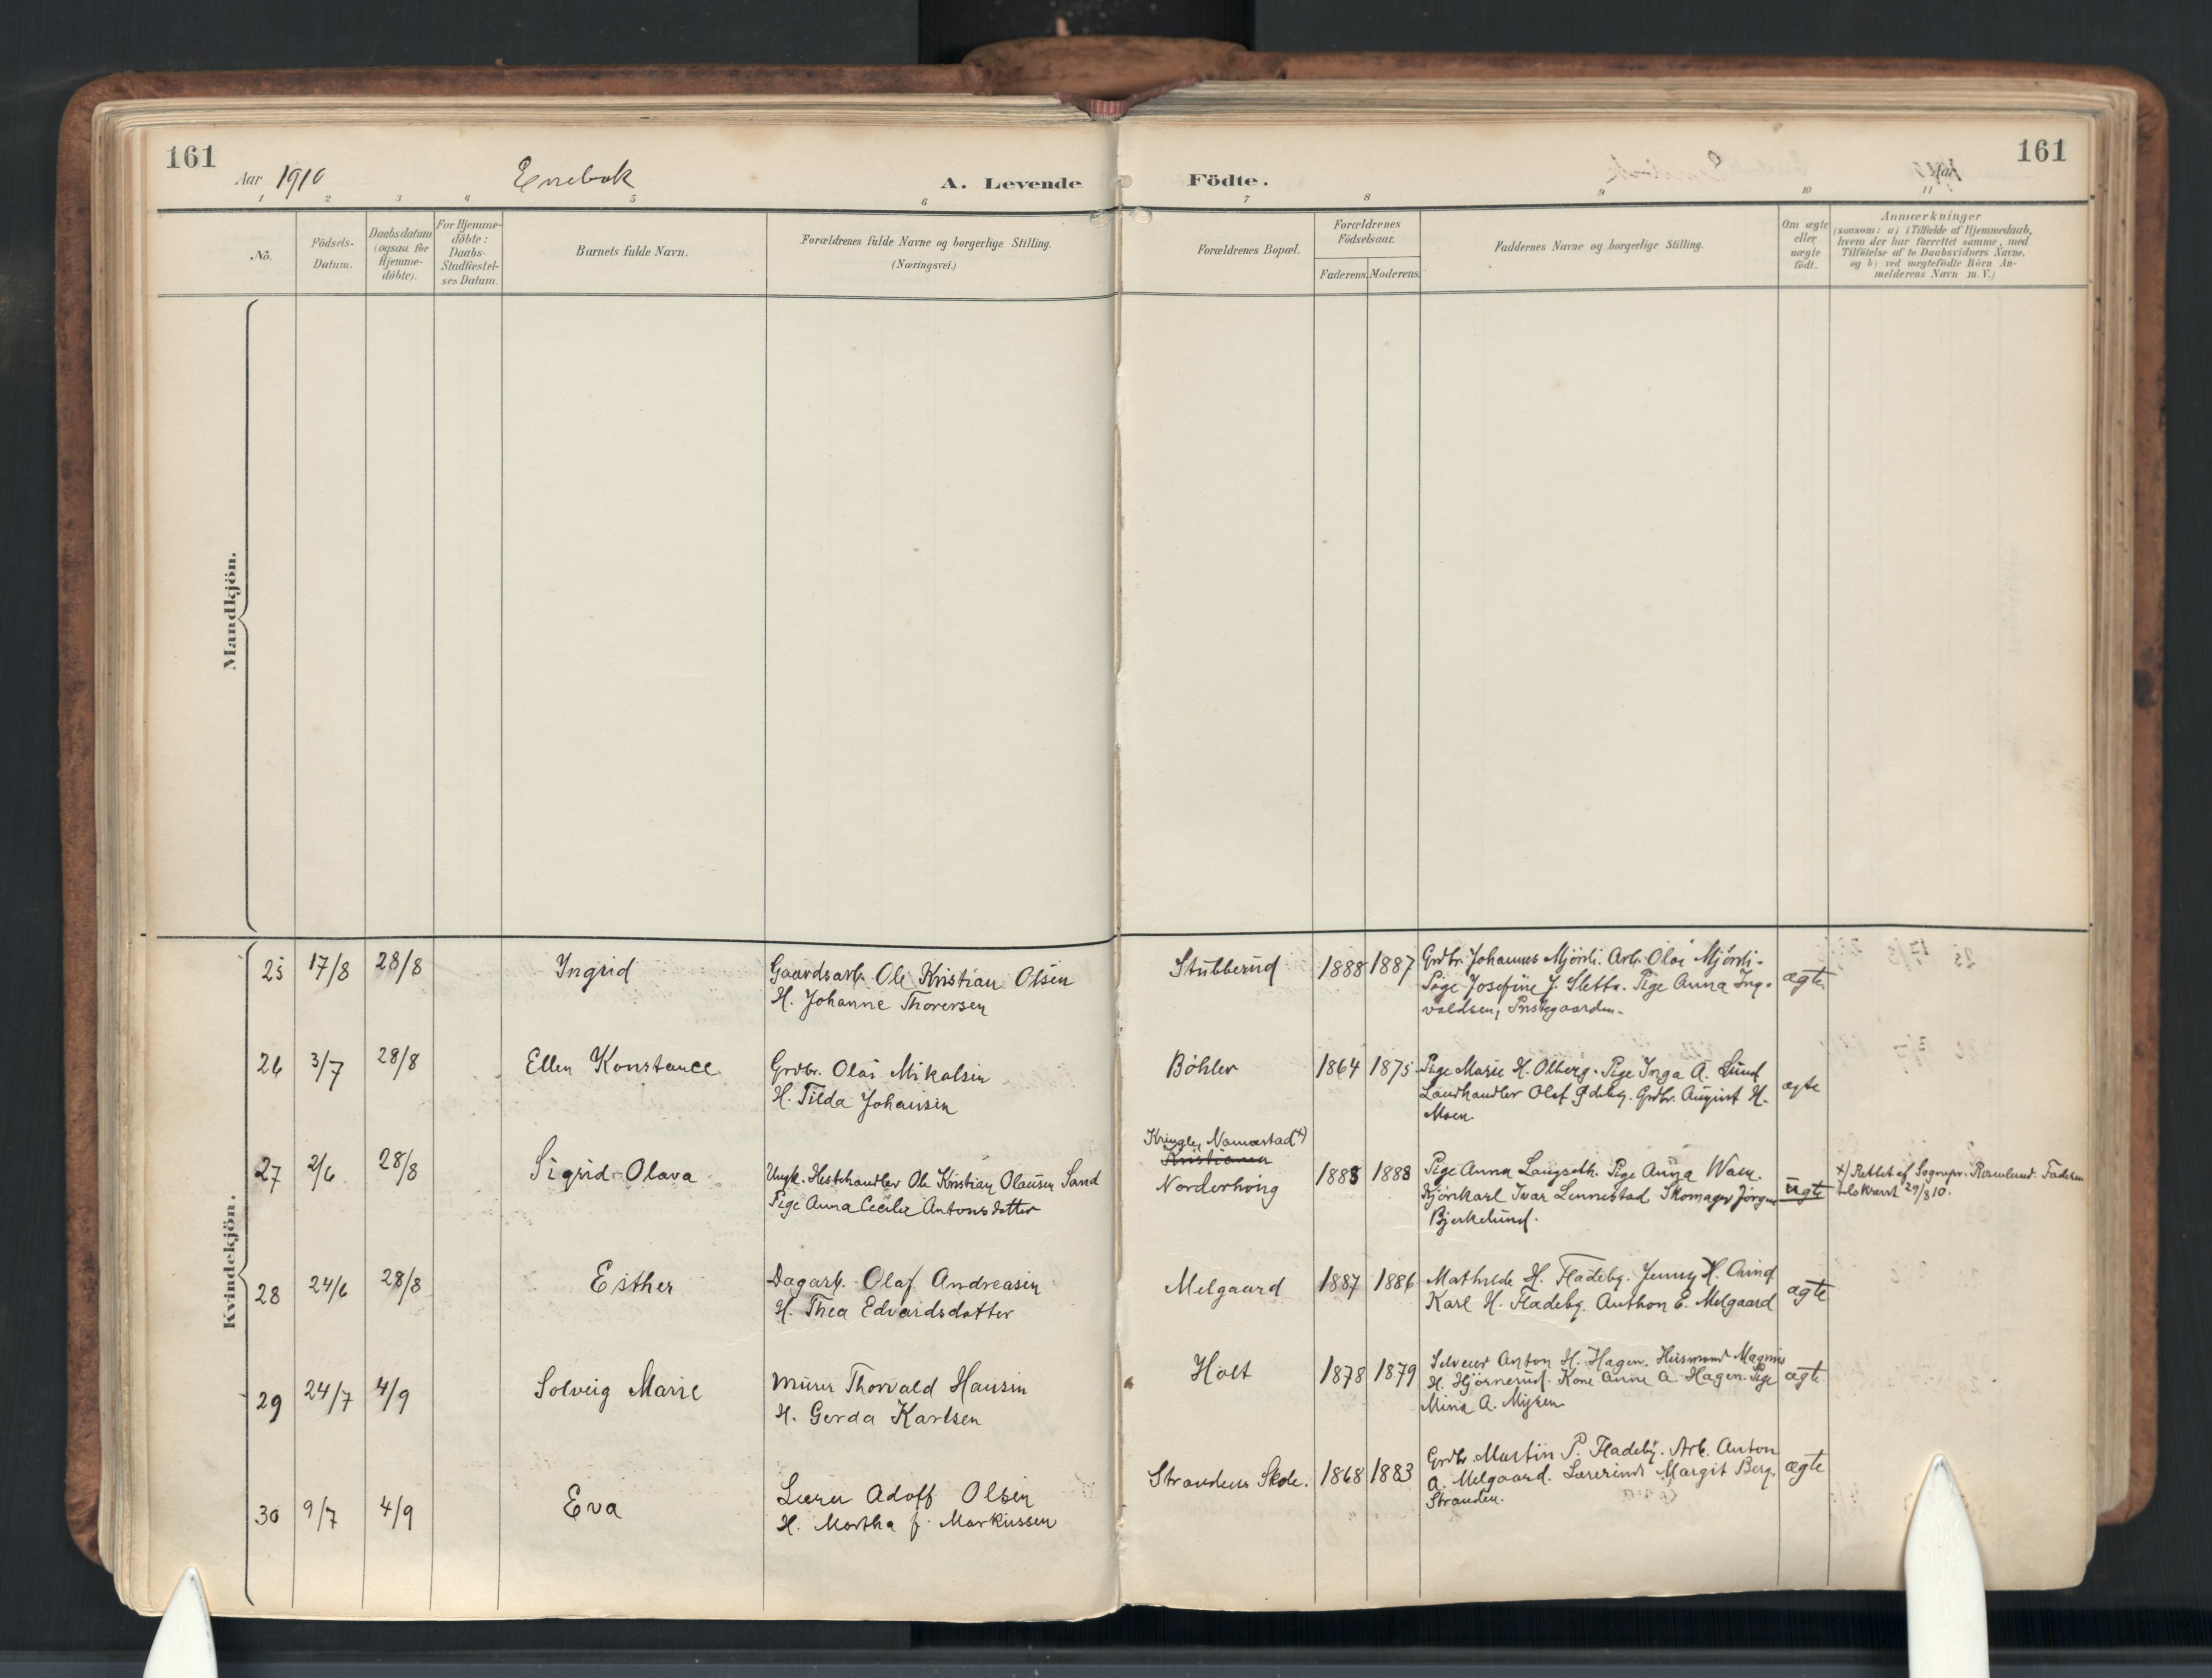 161
Aar 1910
Enebak
A. Levende
Födte.
161
1 2 3 4 5 6 7 8 9 10 11
No.
Födsels-
Datum.
Daabsdatum
(ogsaa for
Hjemme-
döbte).
For Hjemme-
döbte:
Daabs-
Stadfæstel-
ses Datum.
Barnets fulde Navn.
Forældrenes fulde Navne og borgerlige Stilling.
(Næringsvei.)
Forældrenes Bopæl.
Forældrenes
Födselsaar.
Faderens.
Moderens.
Faddernes Navne og borgerlige Stilling.
Om ægte
eller
uægte
födt.
Anmærkninger
(saasom: a) i Tilfælde af Hjemmedaab,
hvem der har forrettet samme, med
Tilföielse af to Daabsvidners Navne,
og b) ved uægtefödte Börn An-
melderens Navn m. V.)
Mandkjön.
Kvindekjön.
25 17/8 28/8 Ingrid
Gaardsarb. Ole Kristian Olsen
H. Johanne Thoversen
Stubberud 1888 1887
Grdbr. Johannes Mjörli. Arb. Olai Mjörli.
Pige Josefine J. Sletta. Pige Anna Ing-
valdsen, Prestegaarden.
ægte
26 3/7 28/8 Ellen Konstance
Grdbr. Olai Mikalsen
H. Tilda Johansen
Böhler 1864 1875
Pige Marie H. Olberg. Pige Inga A. Lund
Landhandler Olaf . Grdbr. August H.
Moen
ægte
27 2/6 28/8 Sigrid Olava
Ungk. Hestehandler Ole Kristian Olausen Sand
Pige Anna Cecilie Antonsdatter
Kringler, Nannestad x)
Kristiania
Norderhong 1883 1888
Pige Anna Langseth. Pige Anna Waer.
Kjörekarl Ivar Lennestad Skomager Jörgen
Bjerkelund.
uægte
x) Rettet af Sognepr. Rosenlund. Faderen
29/8 10.
28 24/6 28/8 Esther
Dagarb. Olaf Andreasen
H. Thea Edvardsdatter
Melgaard 1887 1886
Mathilde H. Fladeby. Jenny H.
Karl H. Fladeby. Anthon E. Melgaard
ægte
29 24/7 4/9 Solveig Marie
Murer Thorvald Hansen
H. Gerda Karlsen
Holt 1878 1879
Selveier Anton H. Hagen. Husmand Magnus
H. Hjörnerud. Kone Anne A. Hagen. Pige
Mina A. Mysen
ægte
30 9/7 4/9 Eva
Lærer Adolf Olsen
H. Martha f. Markussen
Strandens Skole. 1868 1883
Grdbr. Martin P. Fladeby. Arb. Anton
A. Melgaard. Lærerinde Margit Berg,
Stranden.
ægte